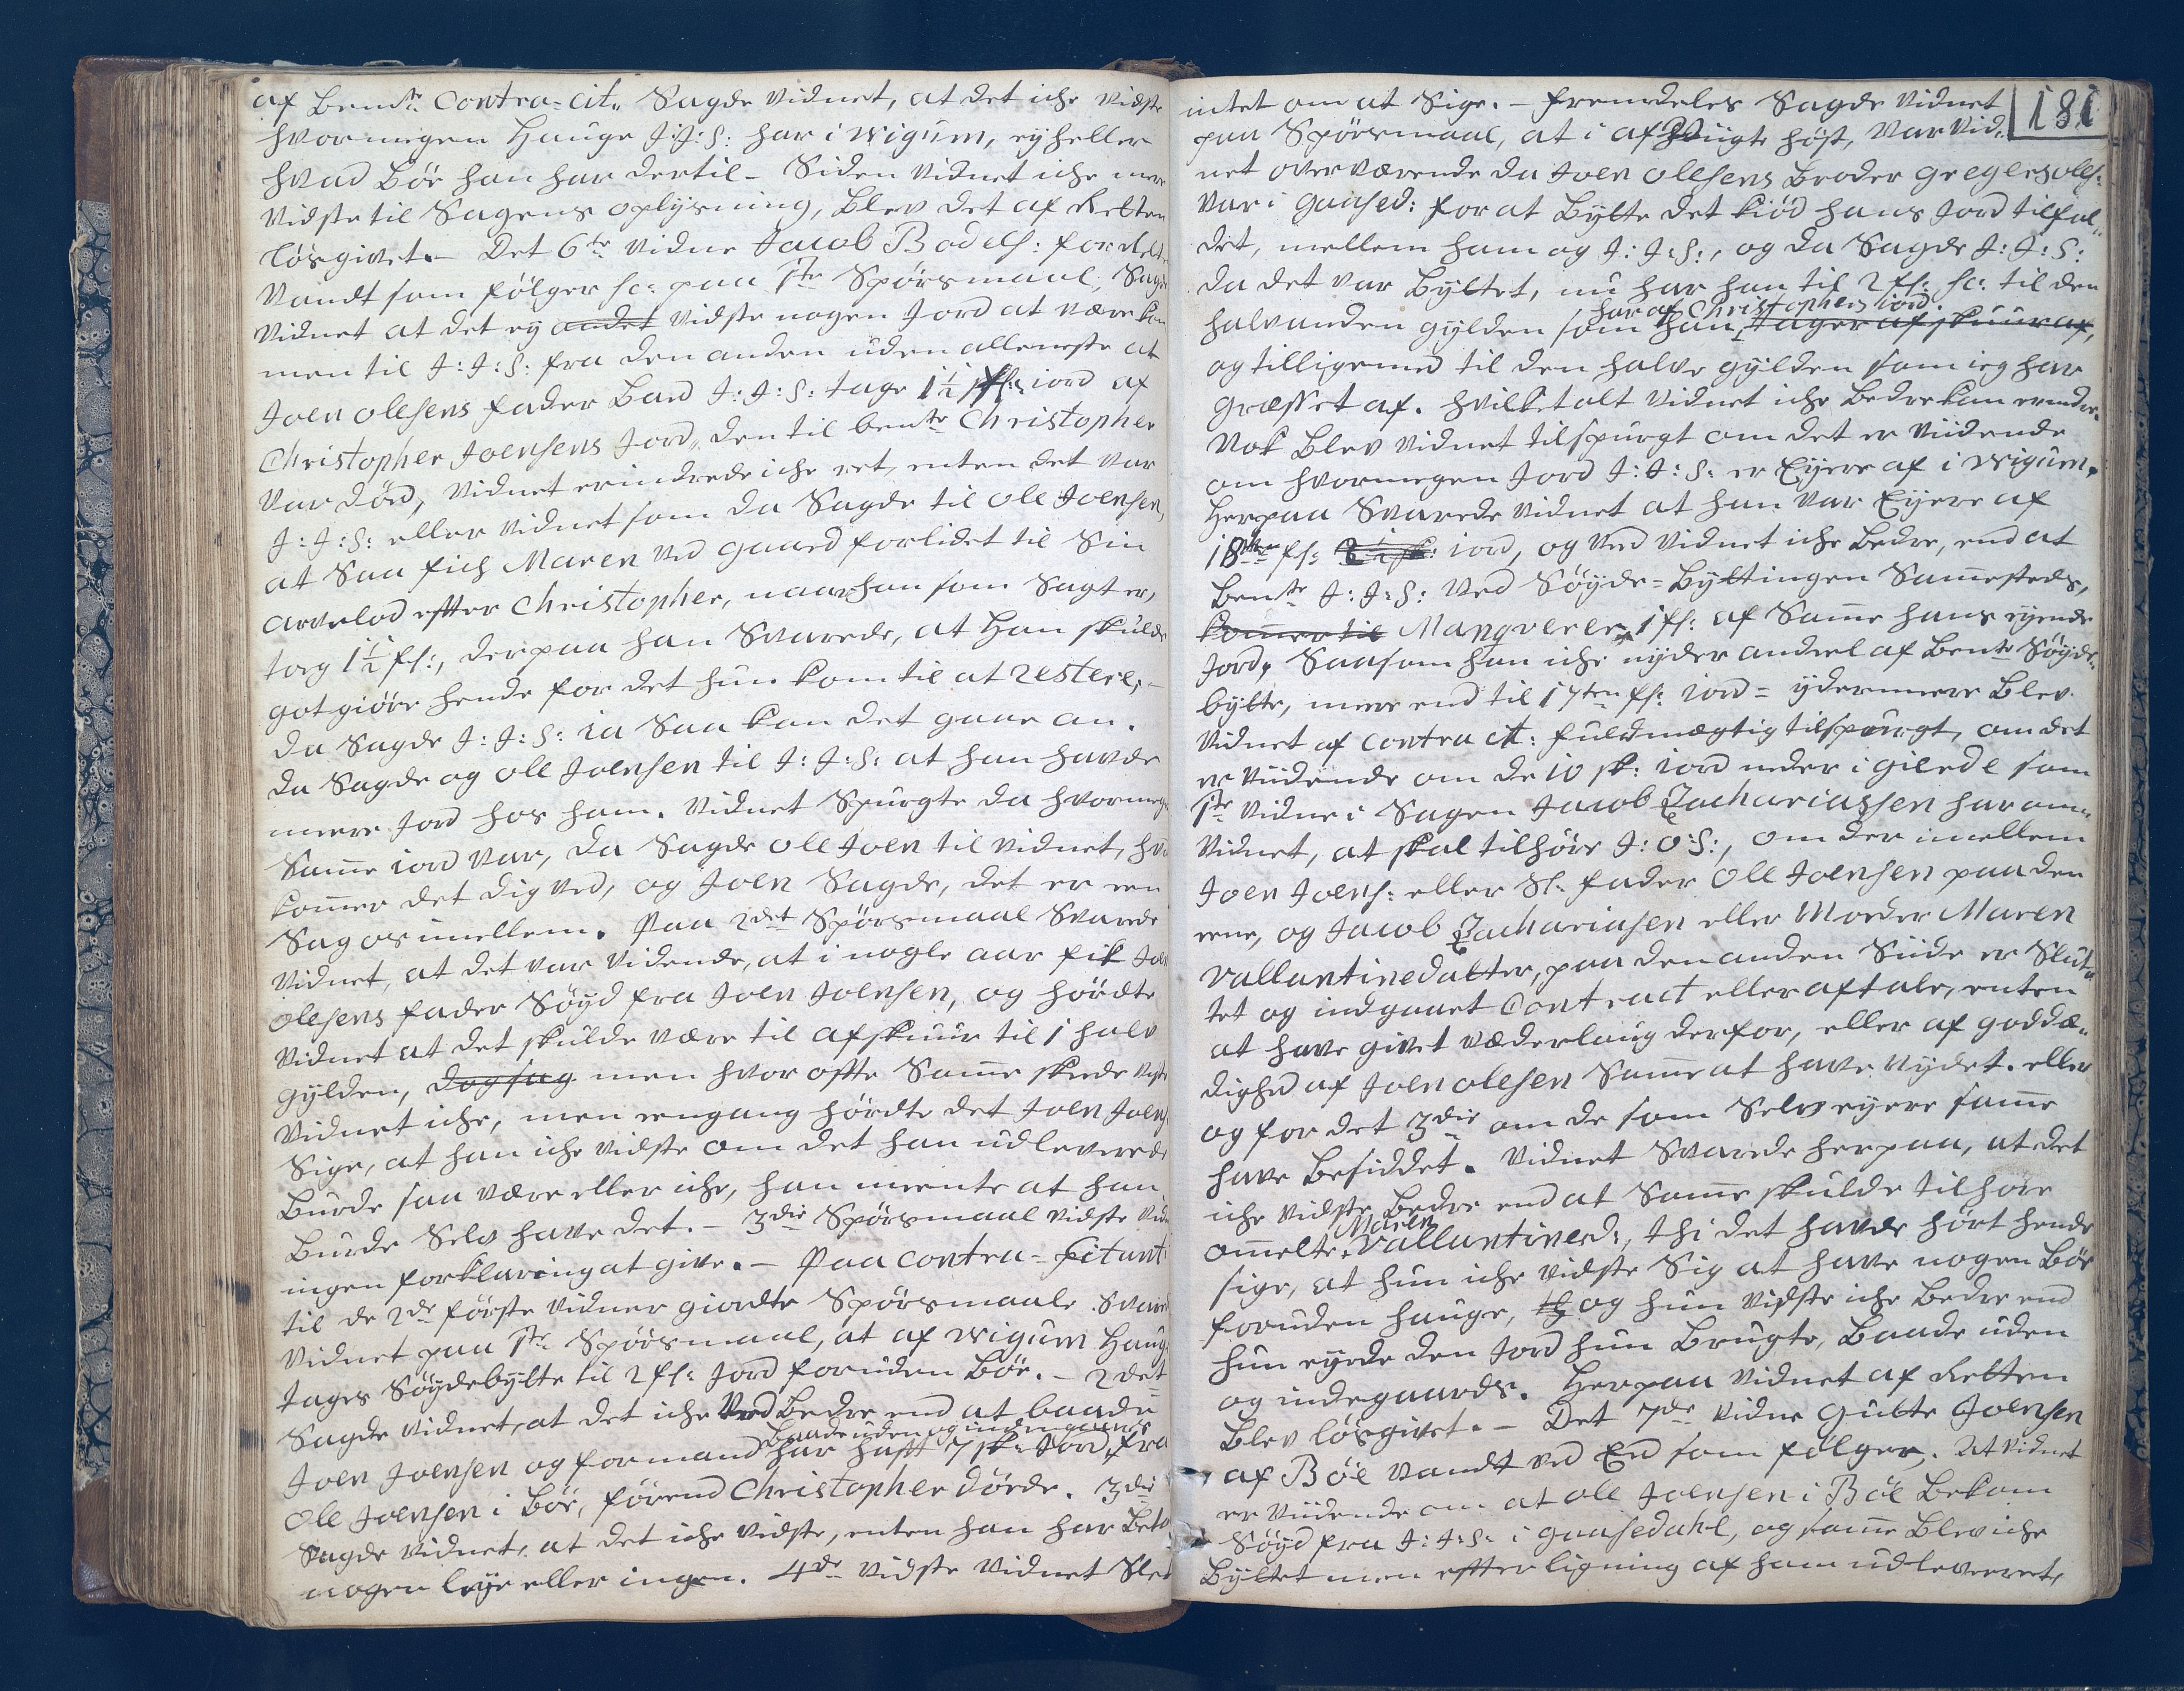 af bemte Contra-cit. Sagde Vidnet, at det iche Vidste
hvormegen Hauge J:J:S: har i Wigum, eyheller
hvad Böe han har dertil - Siden Vidnet iche mere
Vidste til Sagens oplysning, blev det af Retten
lösgivet. - Det 6te Vidne Jacob Bodels:
Vandt som fölger sc: paa 1te Spörsmaal, Sagde
Vidnet at det ey andet Vidste nogen Jord at være kom
men til J:J:S: fra den anden uden alleneste at
Joen Olesens fader bad J:J:S: tage 1½ jord af
Christopher Joensens Jord, den til bemte Christopher
Var död, Vidnet erindrede iche ret, enten det var
J:J:S: eller Vidnet som da Sagde til Ole Joensen,
at Saa fich Maren Ved Gaard forlidet til Sin
arvelod efter Christopher, naar han som Sagt er,
tog 1½ fs:, derpaa han Svarede, at Han skulde
gotgiöre hende for det hun kom til at restere, -
da Sagde J:J:S: ia Saa kan det gaae an.
da Sagde og Ole Joensen til J:J:S: at han havde
meere Jord hos ham. Vidnet Spurgte da hvormeg
Samme iord var, da Sagde Ole Joen til Vidnet, hva
kommer det dig ved, og Joen Sagde, det er een
Sag os imellem. Paa 2det Spörsmaal Svarede
Vidnet, at det var Vidende, at i nogle aar fik Joen
Olesens fader Söyd fra Joen Joensen, og hördte
Vidnet at det skulde være til afskuur til 1 halv
gylden, men hvor ofte Samme skede Vidste
Vidnet iche, men eengang hördte det Joen Joens
Sige, at han iche Vidste om det han udleverede
burde saa være eller iche, han meente at han
burde Selv have det. - 3die Spörsmaal Vidste Vid
ingen forklaring at give. - Paa Contra-Citant
til de 2de förste Vidner giordte Spörsmaale Svared
Vidnet paa 1te Spörsmaal, at af Wigum Haug
tages Söydebytte til 2 fs: Jord foruden Böe. - 2det
Sagde Vidnet, at det iche Ved bedre end at baade
baade uden og indengaards
Joen Joensen og formand har haft 7 sk: Jord fra
Ole Joensen i Böe, förend Christopher döede. 3die
Sagde Vidnet, at det iche Vidste, enten han har Beta
nogen leye eller ingen. 4de Vidste Vidnet Slet
181
intet om at Sige. - fremdeles Sagde Vidnet
paa Spörsmaal, at i afvigte höst, Var Vid,
net overværende da Joen Olesens Broder Gregers Oles:
Var i Gaased: for at bytte det kiöd hans Jord tilfal,
det, mellem ham og J:J:S:, og da Sagde J:J:S:
da det var byttet, nu har han til 2 fs: sc: til den
har af Christophers iord.
halvanden gylden som han tager afskuur af,
og tilligemed til den halve gylden som ieg har
græsset af. hvilket alt Vidnet iche bedre kan erindre.
Nok blev Vidnet tilspurgt om det er Viidende
om hvormegen Jord J:J:S: er Eyere af i Wigum,
herpaa Svarede Vidnet at han var Eyere af
18ten fs: iord, og ved Vidnet iche bedre, end at
bemte J:J:S: Ved Söyde-byttingen Sammesteds,
kommer til Mangverer 1 fs: af Samme hans eyende
Jord, Saasom han iche nyder andeel af bemte Söyde
bytte, meer end til 17ten fs: iord = ydermeere blev
Vidnet af Contra cit: fuldmægtig tilspurgt, om det
er Viidende om de 10 sk: iord neder i Gierde som
1te Vidne i Sagen Jacob Zachariassen har om-
Vidnet, at skal tilhöre J:O:S:, om der imellem
Joen Joens: eller Sl: fader Ole Joensen paa den
eene, og Jacob Zachariasen eller Moder Maren
Vallantinedatter, paa den anden Siide er Slut,
tet og indgaaet Contract eller aftale, enten
at have givet væderlaug derfor, eller af goddæ,
dighed af Joen Olesen Samme at have nydet. eller
og for det 3die om de som Selveyere samme
have besiddet. Vidnet Svarede herpaa, at det
iche Vidste bedre end at Samme skulde tilhöre
Maren
ommelte Vallantined:, thi det havde hört hende
sige, at hun iche Vidste Sig at have nogen Böe
foruden hauge, og hun Vidste iche bedre end
hun eyede den Jord hun brugte, baade uden
og indegaards. herpaa Vidnet af Retten
blev lösgivet. - Det 7de Vidne Gutte Joensen
af Böe Vandt ved Eed som fölger. At Vidnet
er Viidende om at Ole Joensen i Böe bekom
Söyd fra J:J:S: i Gaasedahl, og samme blev iche
byttet men efter ligning af ham udleveret,